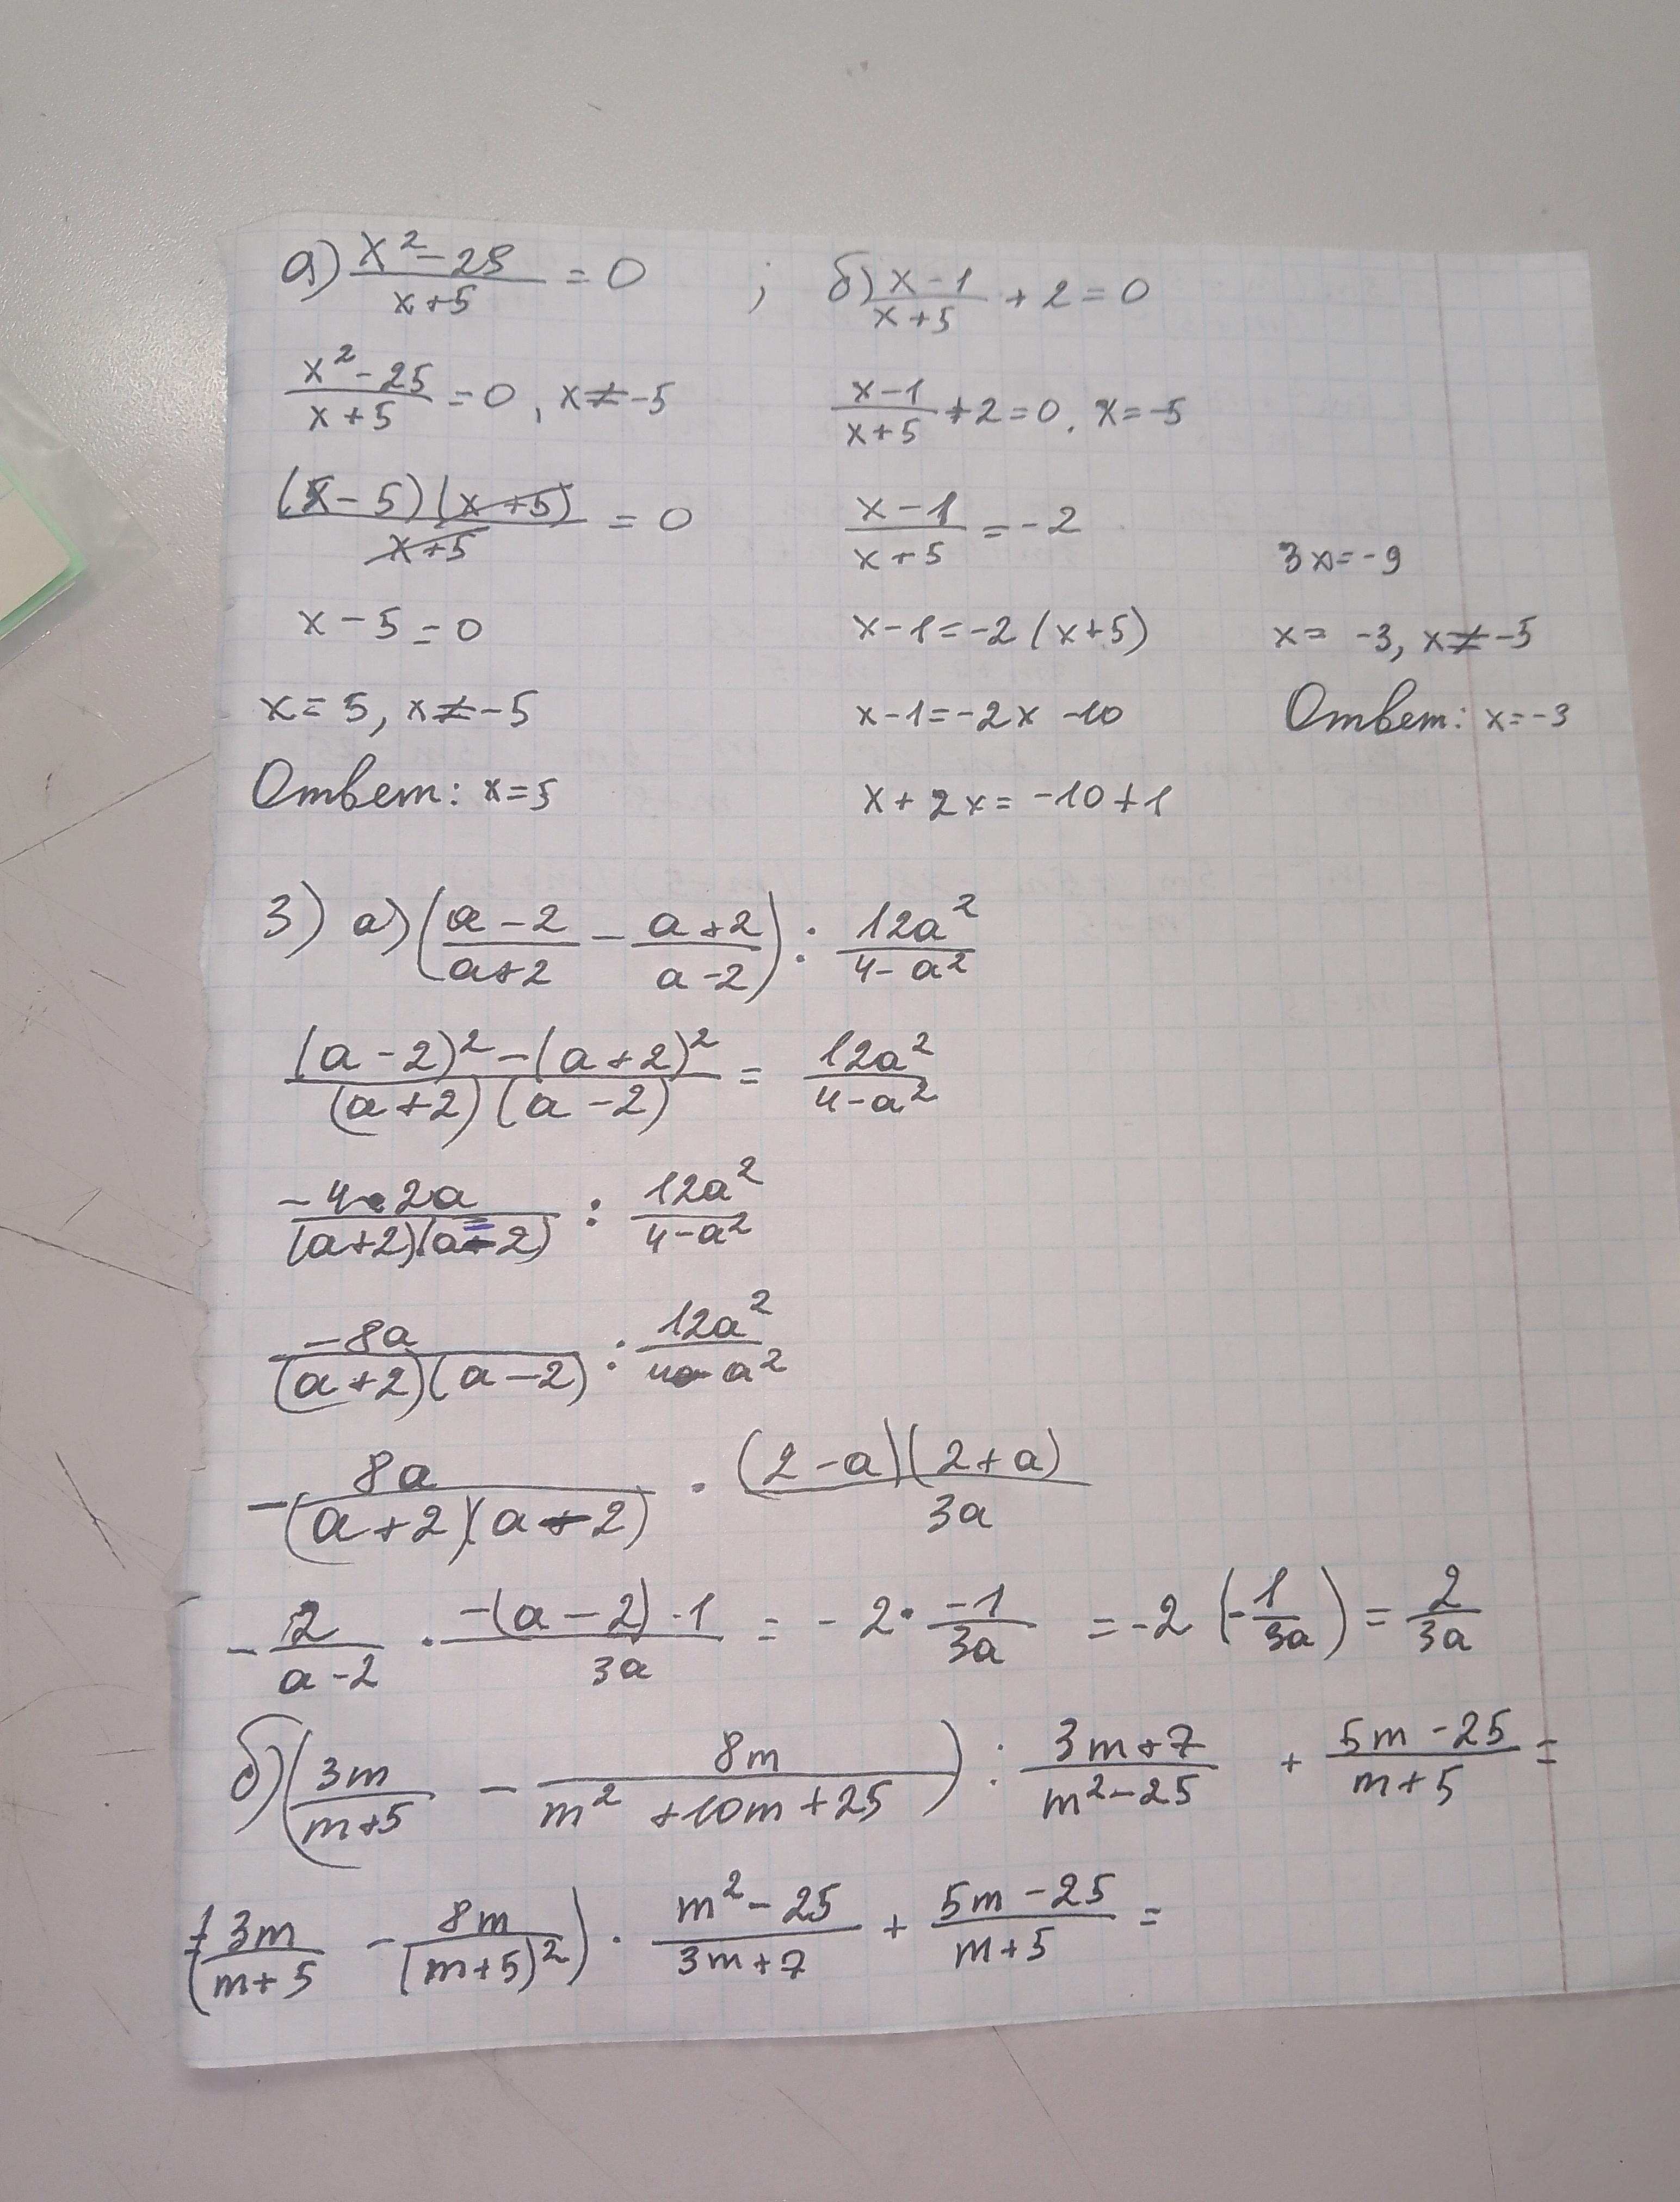 а) (x² - 25)/(x+5) = 0 ; б) (x-1)/(x+5) + 2 = 0
(x² - 25)/(x+5) = 0, x ≠ -5
(x-5)(x+5)/(x+5) = 0
x - 5 = 0
x = 5, x ≠ -5
Ответ: x = 5
(x-1)/(x+5) + 2 = 0, x = -5
(x-1)/(x+5) = -2
x - 1 = -2 (x+5)
x - 1 = -2x - 10
x + 2x = -10 + 1
3x = -9
x = -3, x ≠ -5
Ответ: x = -3
3) а) ((a-2)/(a+2) - (a+2)/(a-2)) : 12a²/(4-a²)
((a-2)² - (a+2)²)/((a+2)(a-2)) = 12a²/(4-a²)
(-4·2a)/((a+2)(a-2)) : 12a²/(4-a²)
-8a/((a+2)(a-2)) : 12a²/(4-a²)
- 8a/((a+2)(a-2)) · (2-a)(2+a)/3a
- 2/(a-2) · (-(a-2)·1)/3a = -2 · (-1)/3a = -2 (-1/3a) = 2/3a
б) (3m/(m+5) - 8m/(m²+10m+25)) : (3m+7)/(m²-25) + (5m-25)/(m+5) =
= (3m/(m+5) - 8m/(m+5)²) · (m²-25)/(3m+7) + (5m-25)/(m+5) =